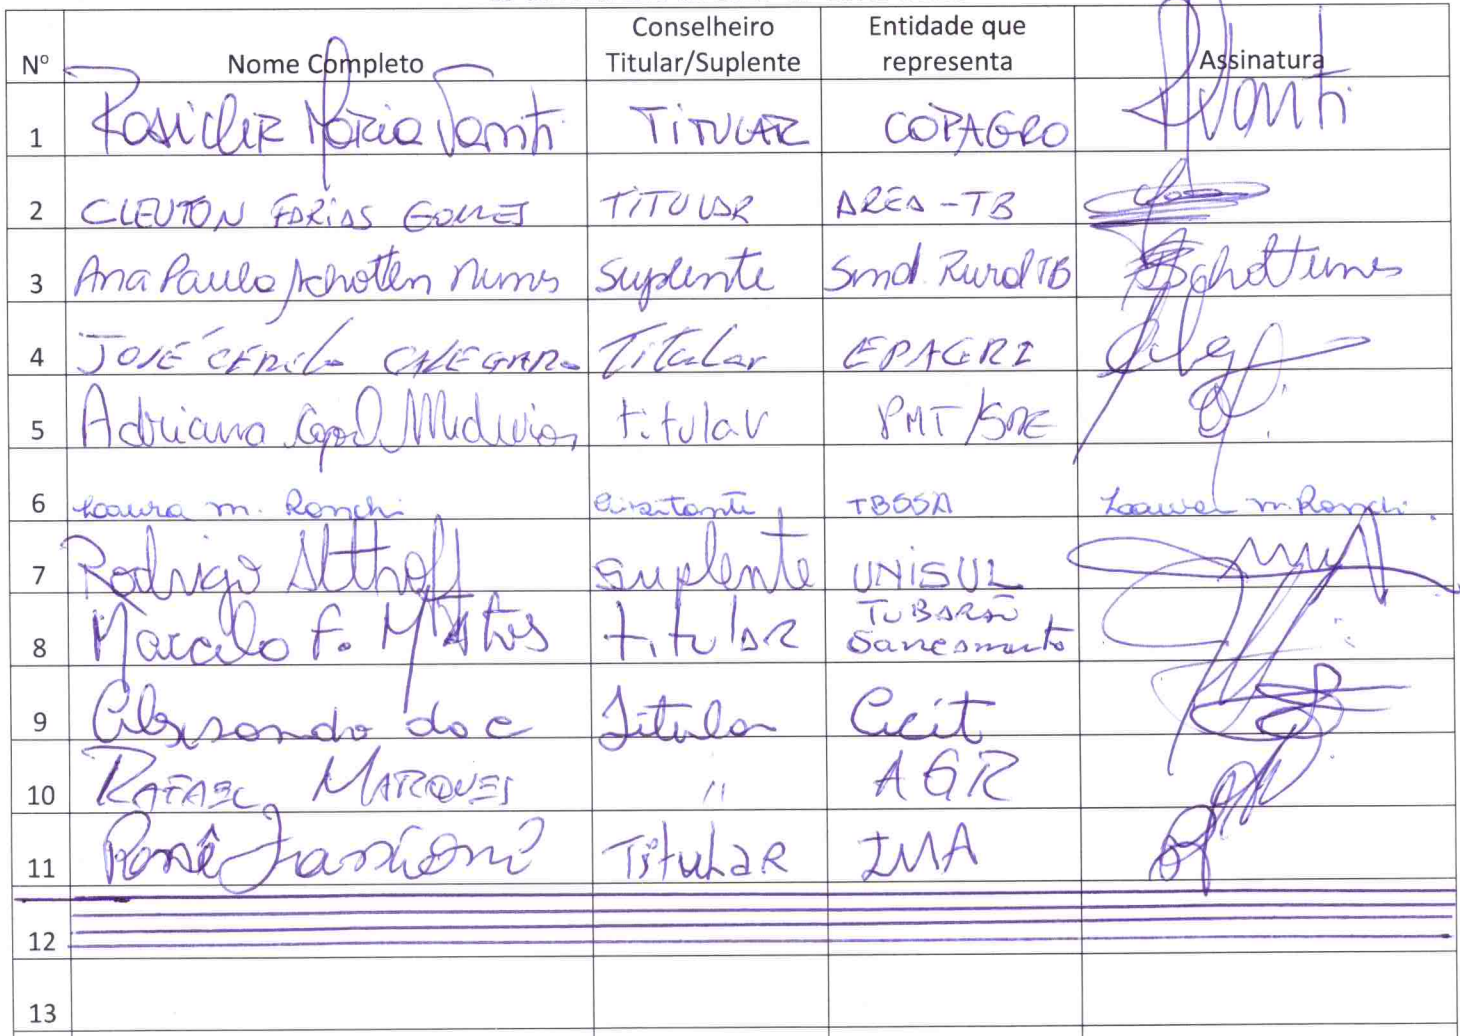 Nº Nome Completo Conselheiro Titular/Suplente Entidade que representa Assinatura
1 Rosicler Maria Vanti TiTULAR COPAGRO RVanti
2 CLEUTON FARIAS GOMES TITULAR AREA-TB
3 Ana Paula Schotten Nunes Suplente Sind. Rural TB
4 JOSÉ CERILO CALEGARO Titular EPAGRI
5 Adriana Medeiros titular PMT/SDE
6 Laura m. Ronchi visitante TBSSA Laura m. Ronchi
7 Rodrigo Althoff suplente UNISUL
8 Marcelo F. Matos titular TUBARÃO Saneamento
9 do c Titular Cicit
10 RAFAEL MARQUES " AGR
11 Titular IMA
12
13